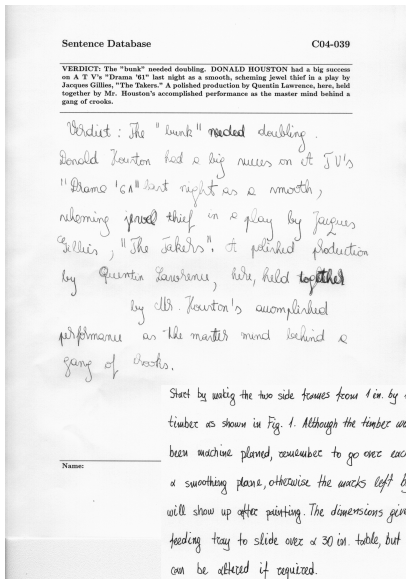 Sentence Database C04-039
VERDICT: The "bunk" needed doubling. DONALD HOUSTON had a big success
on A T V's "Drama '61" last night as a smooth, scheming jewel thief in a play by
Jacques Gillies, "The Takers." A polished production by Quentin Lawrence, here, held
together by Mr. Houston's accomplished performance as the master mind behind a
gang of crooks.
Verdict : The "bunk" needed doubling.
Donald Houston had a big succes on A TV's
"Drama '61" last night as a smooth,
scheming jewel thief in a play by Jacques
Gillies, "The Takers". A polished production
by Quentin Lawrence, here, held together
by Mr. Houston's accomplished
performance as the master mind behind a
gang of crooks.
Start by making the two side frames from 1 in. by
timber as shown in Fig. 1. Although the timber
been machine planed, remember to go over
a smoothing plane, otherwise the marks left
will show up after painting. The dimensions
feeding tray to slide over a 30 in. table, but
can be altered if required.
Name: